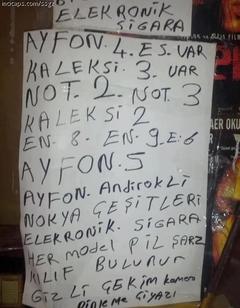 incicaps.com/ssg2
ELEKRONİK
SİGARA
AYFON. 4. ES. VAR
KALEKSİ. 3. VAR
NOT. 2. NOT 3
KALEKSİ 2
EN. 8. EN. 9. E. 6
AYFON. 5
AYFON. Andırokli
NOKYA ÇEŞİTLERİ
ELEKRONİK. SİGARA
HER MODEL PİL ŞARZ
KILIF BULUNUR
GİZLİ ÇEKİM kamera
DİNLEME CİYAZI